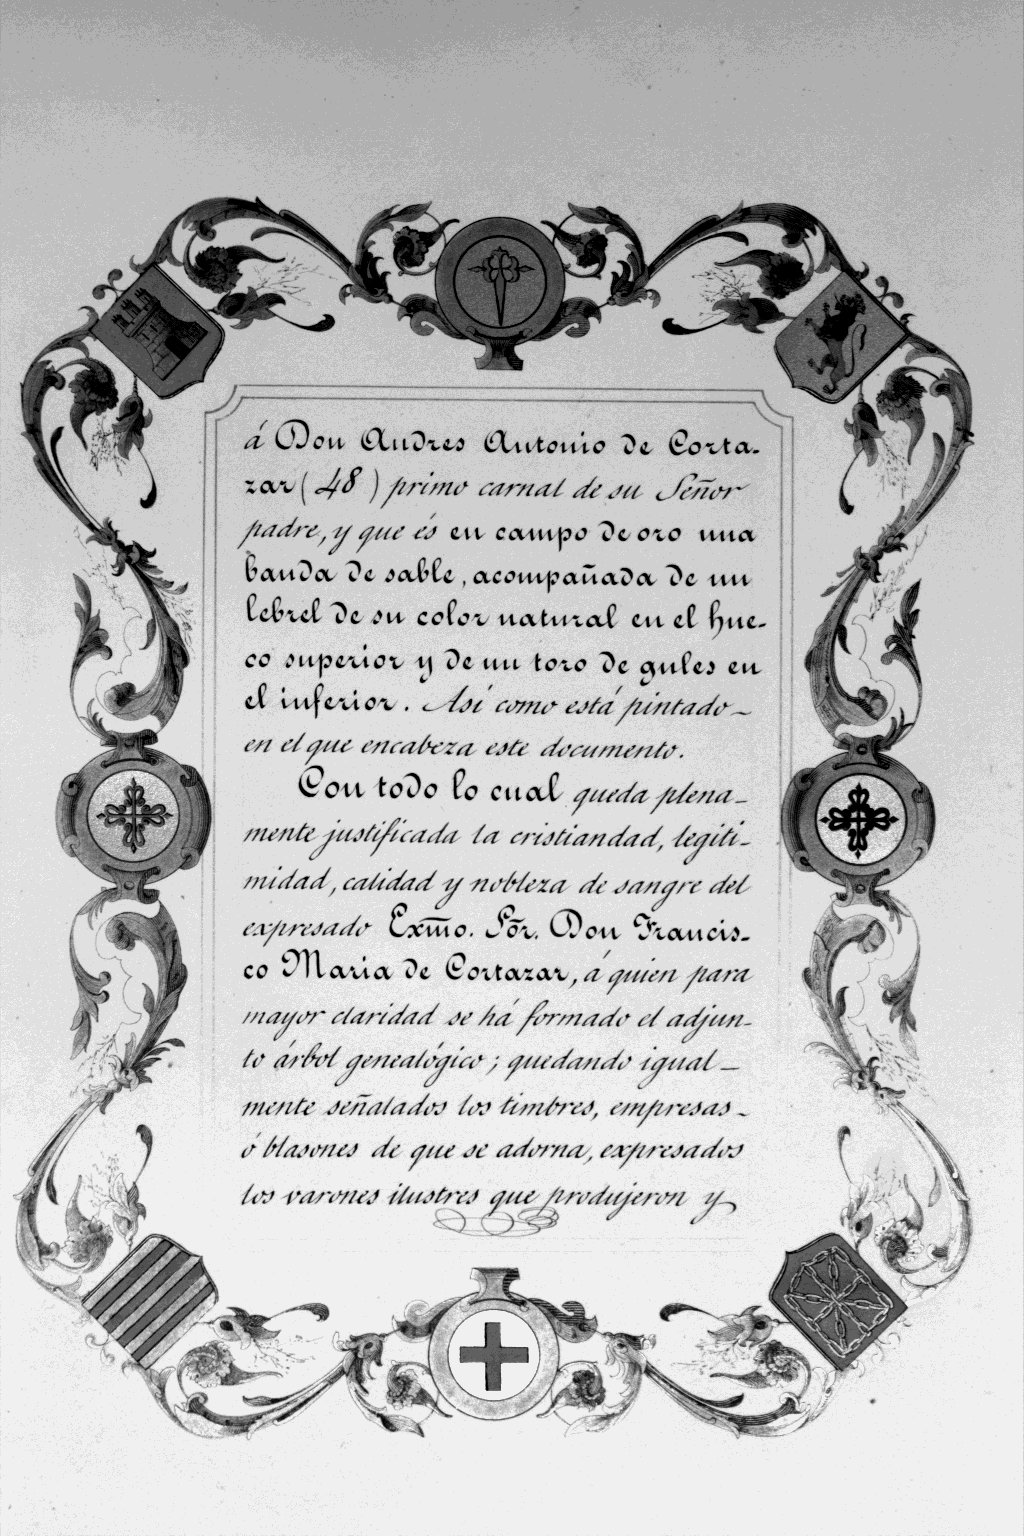 á Don Andres Antonio de Corta-
zar (48) primo carnal de su Señor
padre, y que és en campo de oro una
banda de sable, acompañada de un
lebrel de su color natural en el hue-
co superior y de un toro de gules en
el inferior. Así como está pintado-
en el que encabeza este documento.
Con todo lo cual queda plena-
mente justificada la cristiandad, legiti-
midad, calidad y nobleza de sangre del
expresado Exm̄o. Sōr. Don Francis-
co Maria de Cortazar, á quien para
mayor claridad se há formado el adjun-
to árbol genealógico; quedando igual-
mente señalados los timbres, empresas-
ó blasones de que se adorna, expresados
los varones ilustres que produjeron y